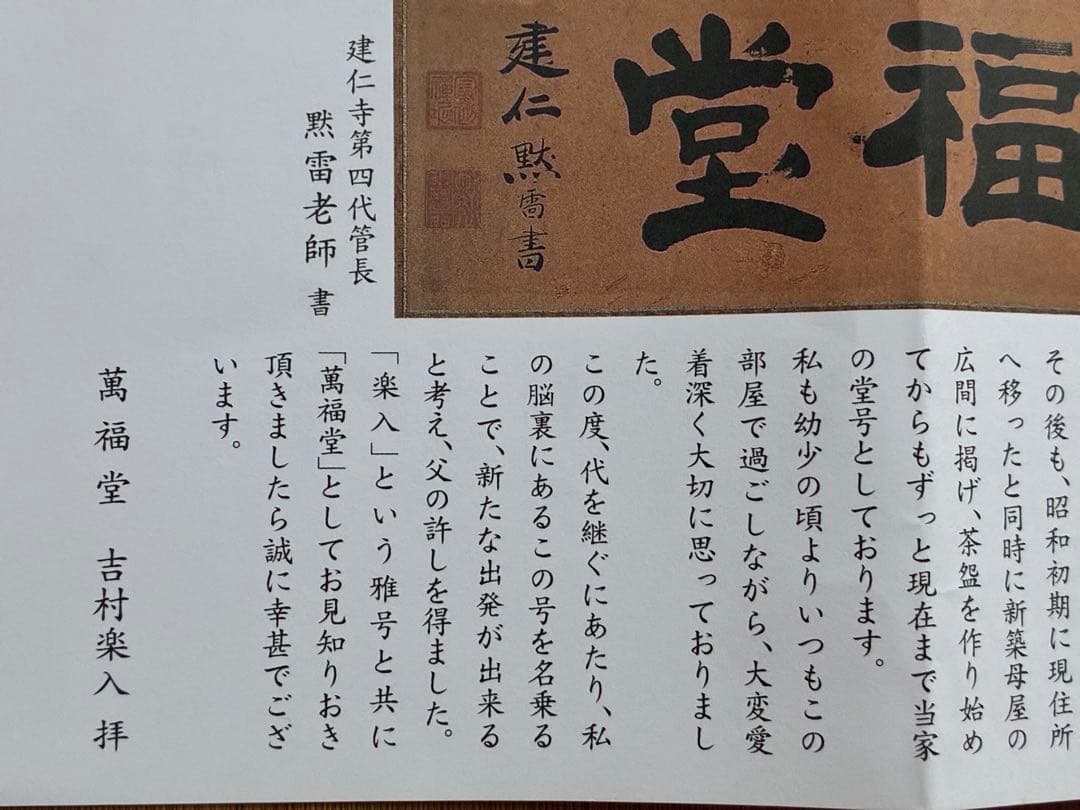 福堂
建仁黙雷書
建仁寺第四代管長
黙雷老師 書
その後も、昭和初期に現住所
へ移ったと同時に新築母屋の
広間に掲げ、茶盌を作り始め
てからもずっと現在まで当家
の堂号としております。
私も幼少の頃よりいつもこの
部屋で過ごしながら、大変愛
着深く大切に思っておりまし
た。
この度、代を継ぐにあたり、私
の脳裏にあるこの号を名乗る
ことで、新たな出発が出来る
と考え、父の許しを得ました。
「楽入」という雅号と共に
「萬福堂」としてお見知りおき
頂きましたら誠に幸甚でござ
います。
萬福堂 吉村楽入 拝